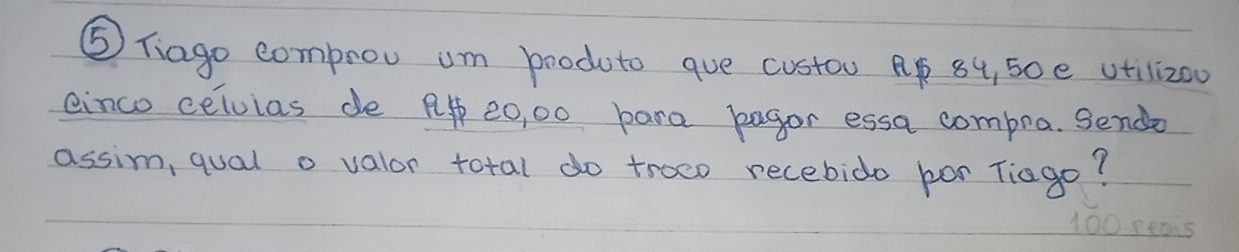 5 Tiago comprou um produto que custou R$ 84,50 e utilizou
cinco células de R$ 20,00 para pagar essa compra. Sendo
assim, qual o valor total do troco recebido por Tiago?
100 reais